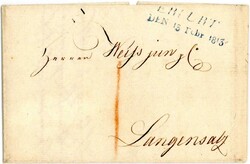 ERFURT
DEN 13 Febr
Herren Weiss jun & C
Langensalz